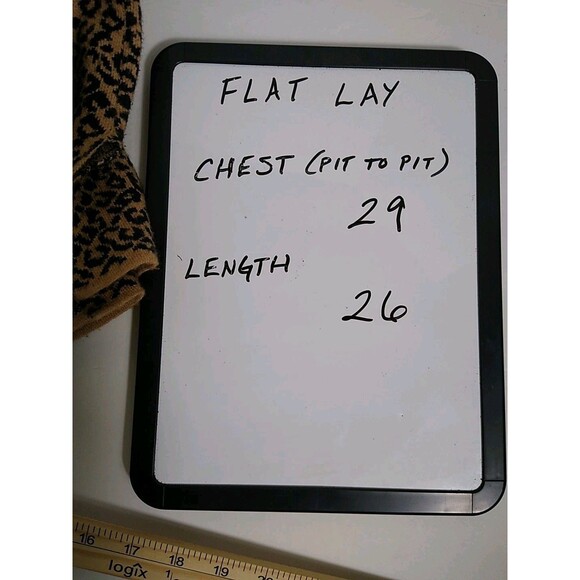 FLAT LAY
CHEST (PIT TO PIT)
29
LENGTH
26
16 17 18 19 20
logix